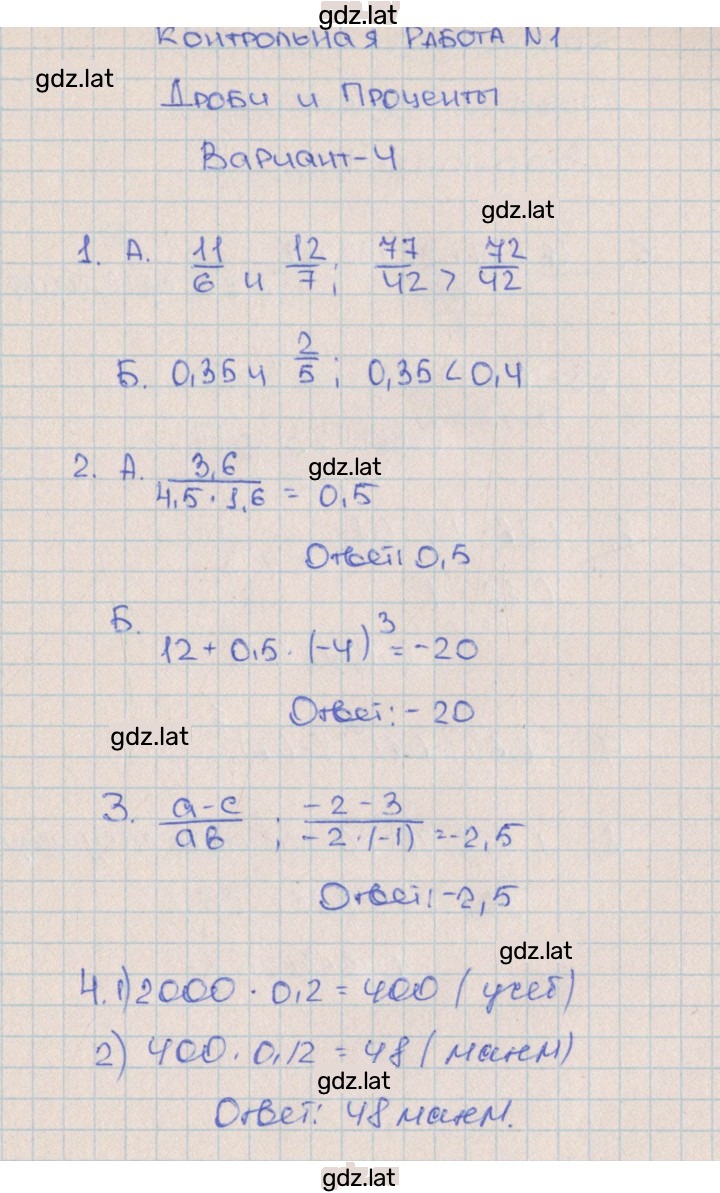 gdz.lat
Контрольная Работа N1
gdz.lat
Дроби и Проценты
Вариант-4
gdz.lat
1. А. 11/6 и 12/7; 77/42 > 72/42
Б. 0,35 и 2/5; 0,35 < 0,4
gdz.lat
2. А. 3,6/(4,5 · 1,6) = 0,5
Ответ: 0,5
Б. 12 + 0,5 · (-4)³ = -20
Ответ: -20
gdz.lat
3. (а-с)/(ав); (-2-3)/(-2·(-1)) = -2,5
Ответ: -2,5
gdz.lat
4. 1) 2000 · 0,2 = 400 (учеб)
2) 400 · 0,12 = 48 (матем)
gdz.lat
Ответ: 48 матем.
gdz.lat